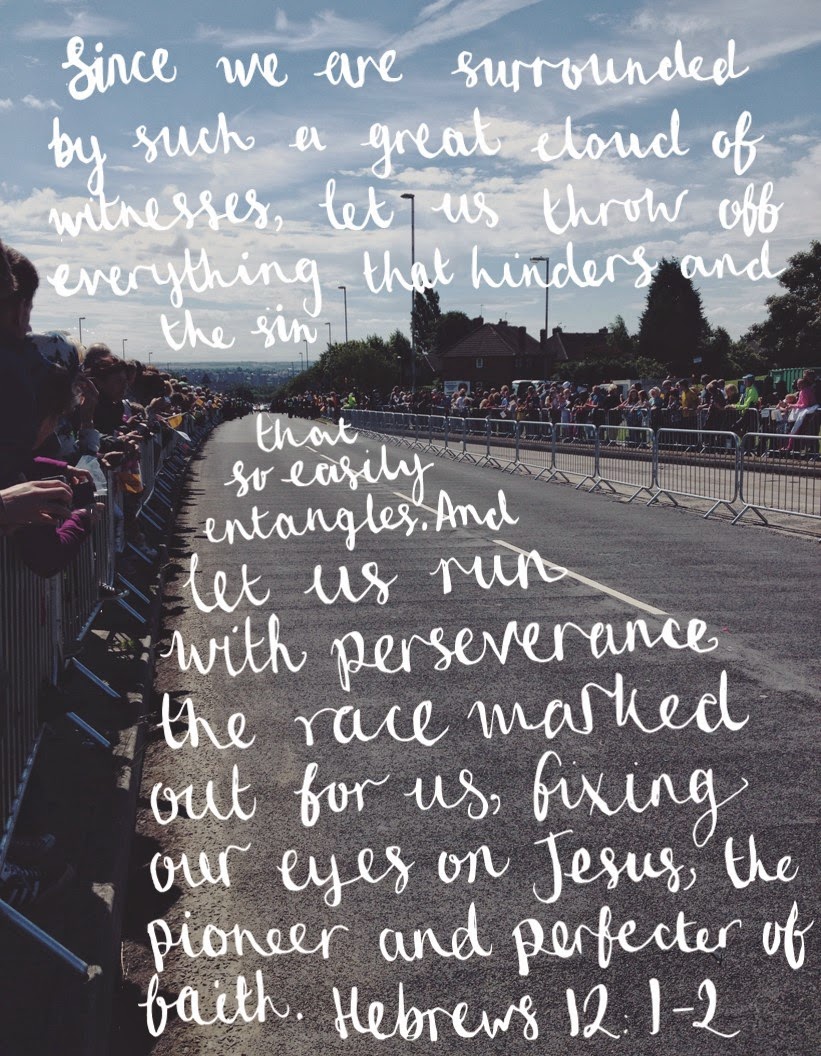 Since we are surrounded
by such a great cloud of
witnesses, let us throw off
everything that hinders and
the sin
that
so easily
entangles. And
let us run
with perseverance
the race marked
out for us, fixing
our eyes on Jesus, the
pioneer and perfecter of
faith. Hebrews 12:1-2